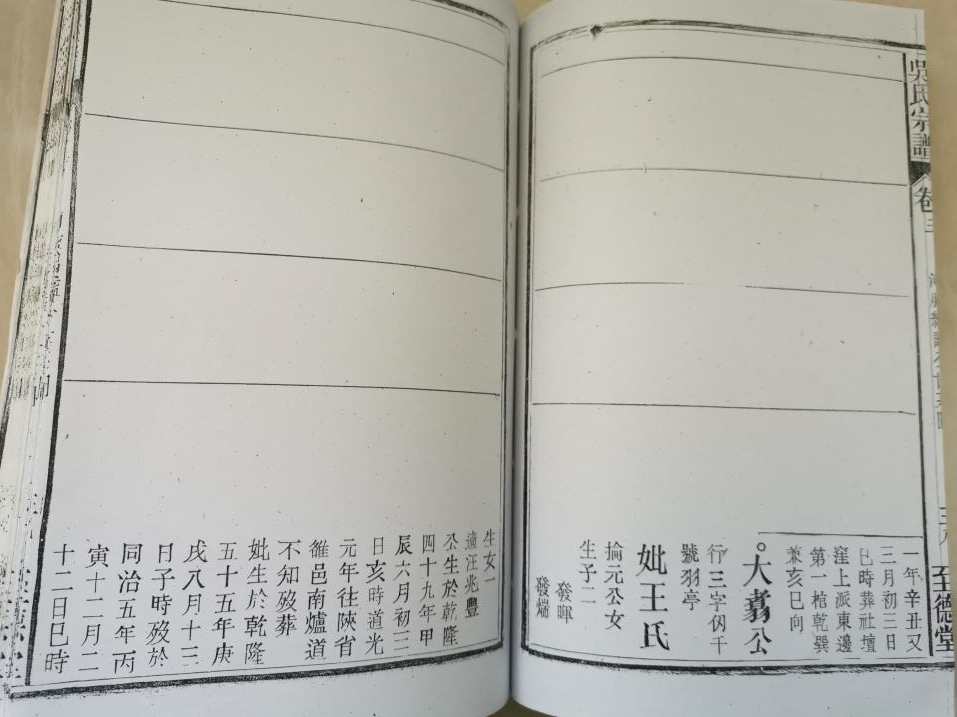 吳氏宗譜
卷三
至德堂
一年辛丑又
三月初三日
巳時葬社壇
窪上派東邊
第一棺乾巽
兼亥巳向
大翥公
行三字仞千
號羽亭
妣王氏
掄元公女
生子二
發暉
生女一
適汪兆豐
公生於乾隆
四十九年甲
辰六月初三
日亥時道光
元年往陝省
雒邑南爐道
不知歿葬
妣生於乾隆
五十五年庚
戌八月十三
日子時歿於
同治五年丙
寅十二月二
十二日巳時